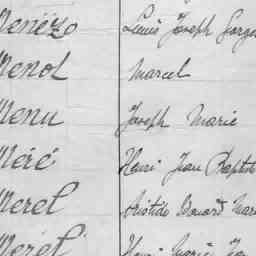 Menézo Louis Joseph
Menol Marcel
Menu Joseph Marie
Méré Henri Jean Baptiste
Merel Aristide Edouard
Merel Henri Marie